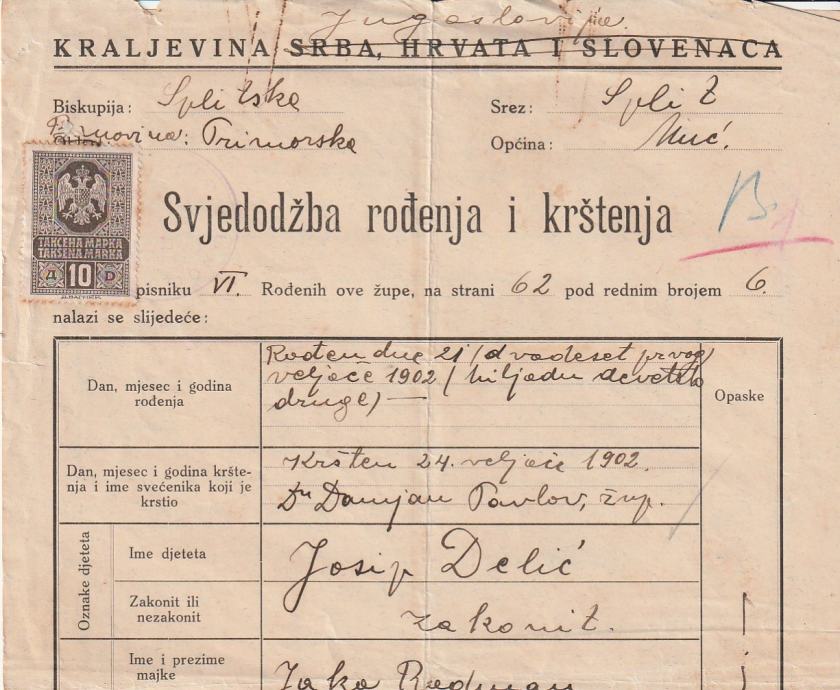 Jugoslavije.
KRALJEVINA SRBA, HRVATA I SLOVENACA
Biskupija: Splitska
Srez: Split
Banovina: Primorska
Općina: Muć.
Svjedodžba rođenja i krštenja
ТАКСЕНА МАРКА
TAKSENA MARKA
Д 10 D
pisniku VI. Rođenih ove župe, na strani 62 pod rednim brojem 6.
nalazi se slijedeće:
Dan, mjesec i godina
rođenja
Rođen dne 21 (dvadeset prvog)
veljače 1902 (hiljadu devetsto
druge) —
Opaske
Dan, mjesec i godina kršte-
nja i ime svećenika koji je
krstio
Kršten 24. veljače 1902.
Damjan Pavlov, žup.
Oznake djeteta
Ime djeteta
Josip Delić
Zakonit ili
nezakonit
zakonit.
Ime i prezime
majke
Jaka Radman